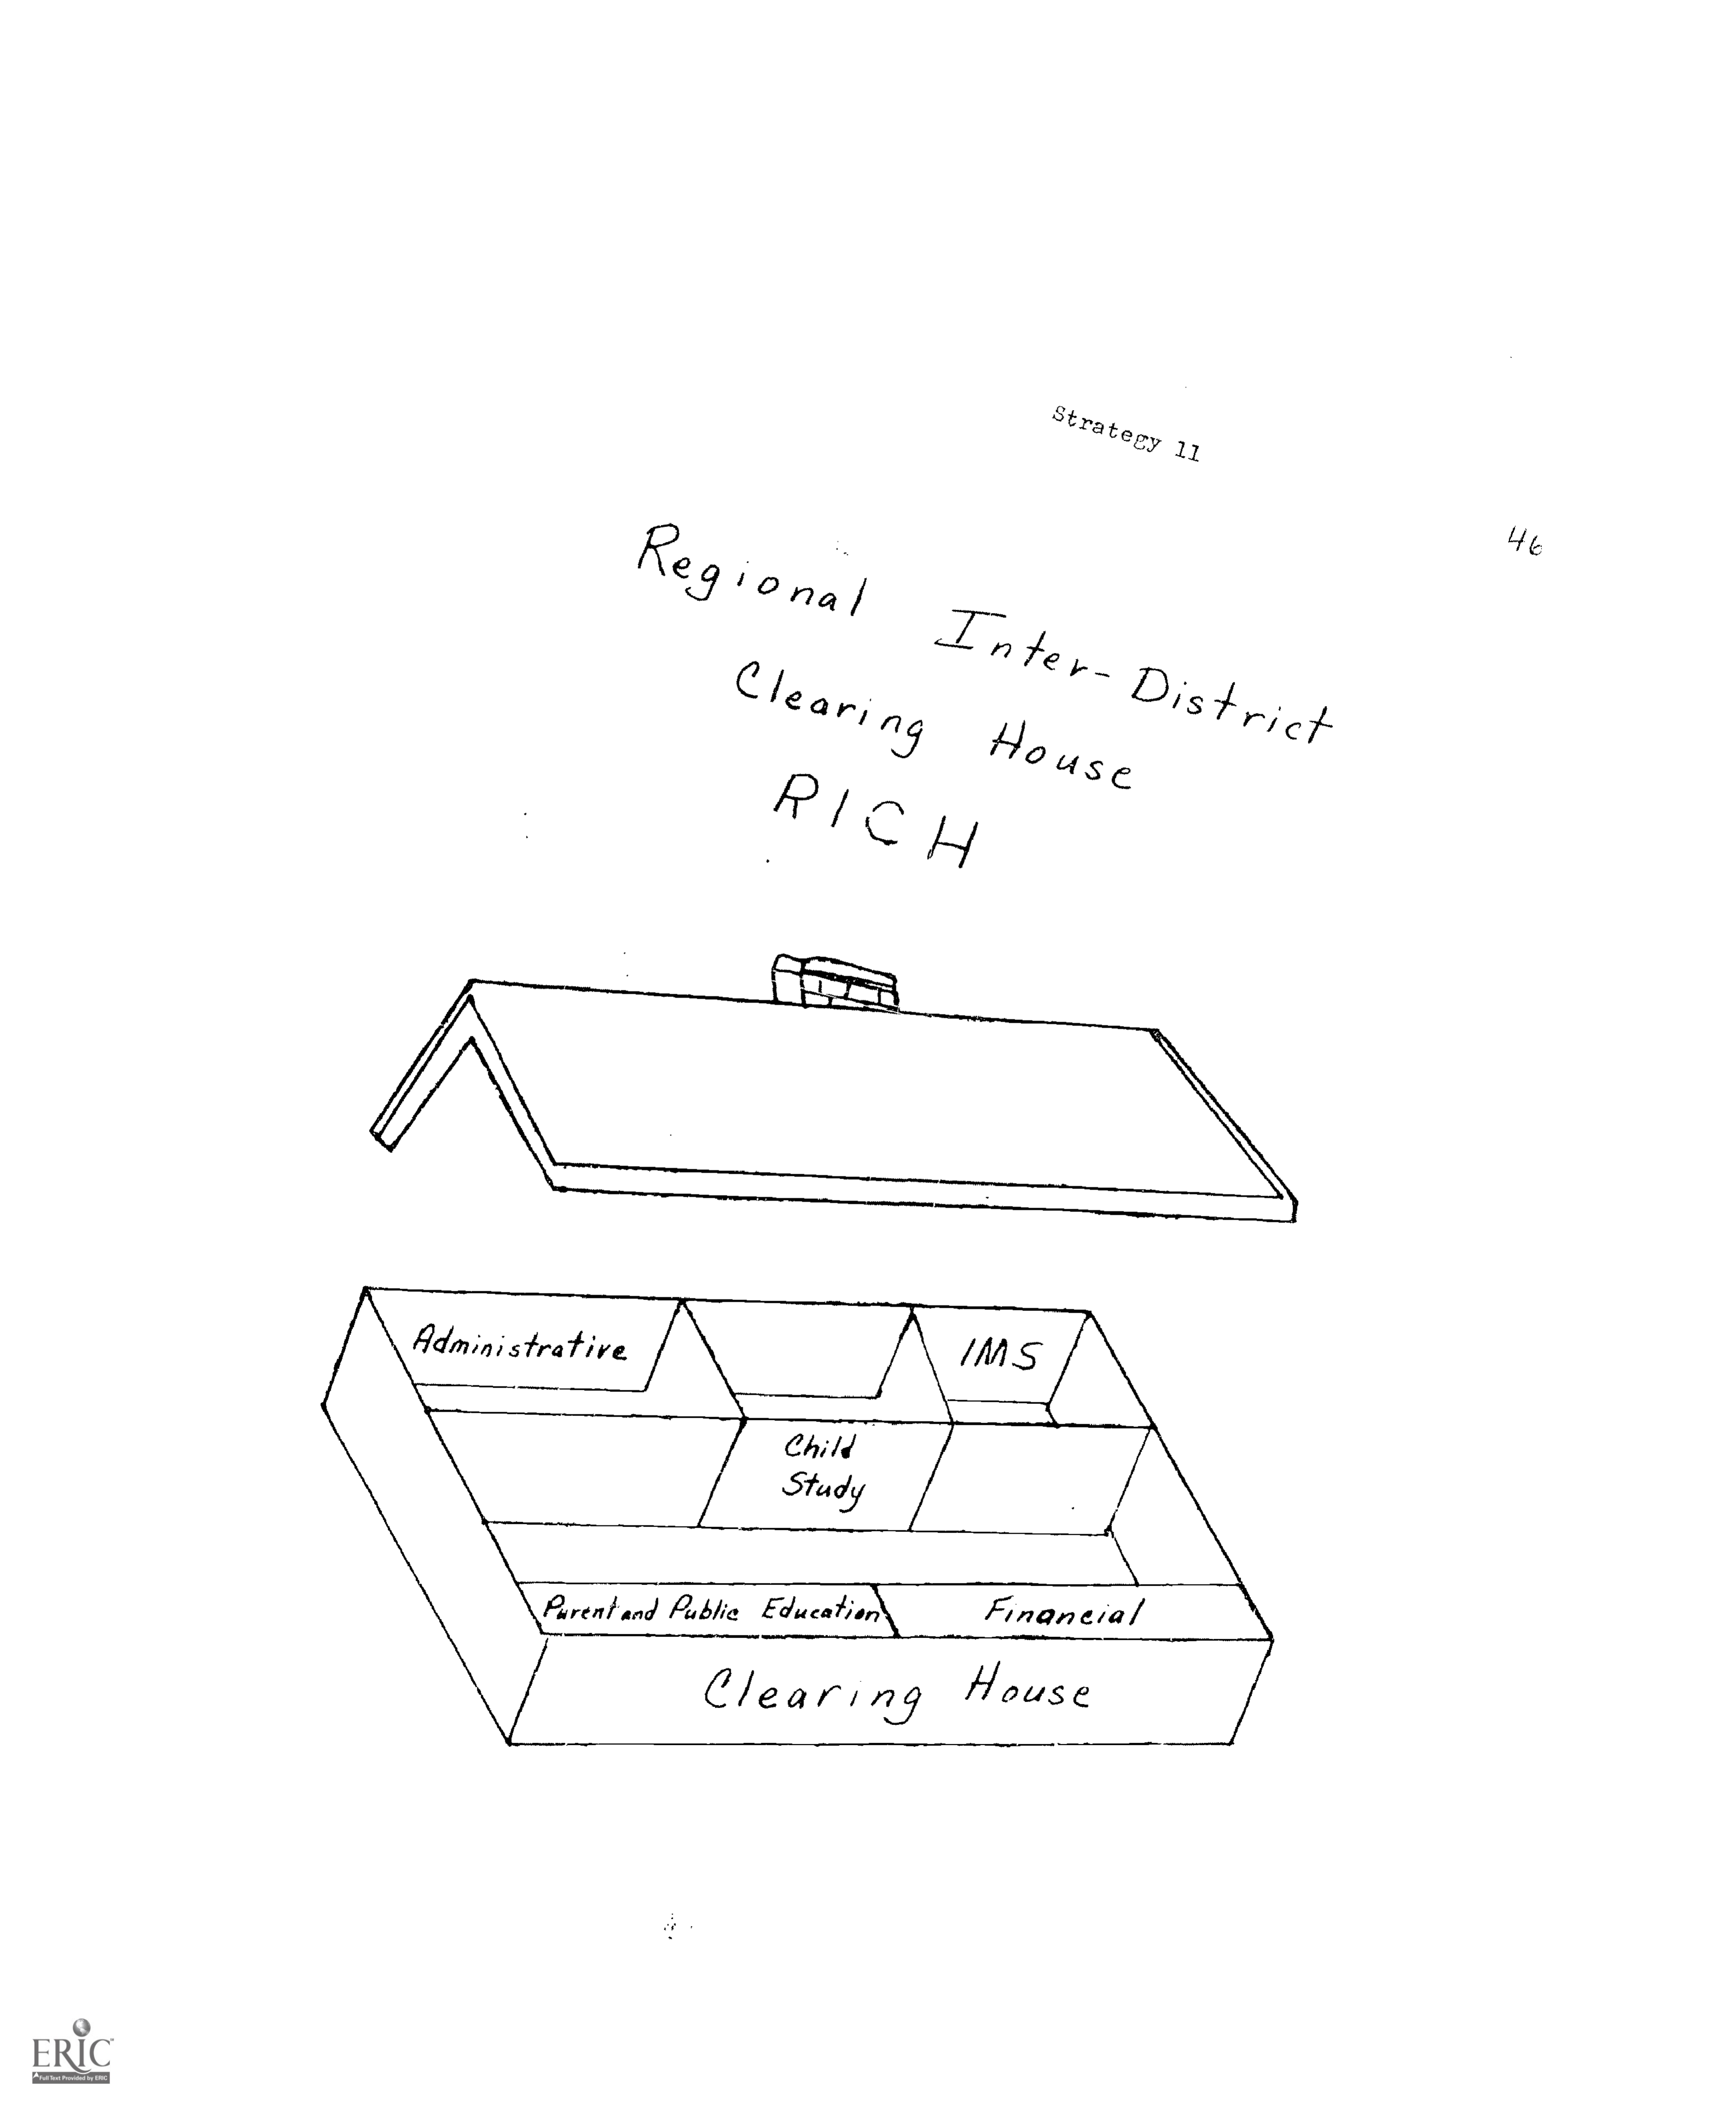 Strategy 11
46
Regional Inter-District
Clearing House
RICH
Administrative
IMS
Child
Study
Parent and Public Education
Financial
Clearing House
ERIC
Full Text Provided by ERIC